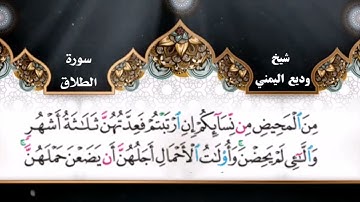 سورة
الطلاق
شيخ
وديع اليمني
مِنَ ٱلْمَحِيضِ مِن نِّسَآئِكُمْ إِنِ ٱرْتَبْتُمْ فَعِدَّتُهُنَّ ثَلَٰثَةُ أَشْهُرٍ
وَٱلَّٰٓـِٔى لَمْ يَحِضْنَ ۚ وَأُو۟لَٰتُ ٱلْأَحْمَالِ أَجَلُهُنَّ أَن يَضَعْنَ حَمْلَهُنَّ ۚ